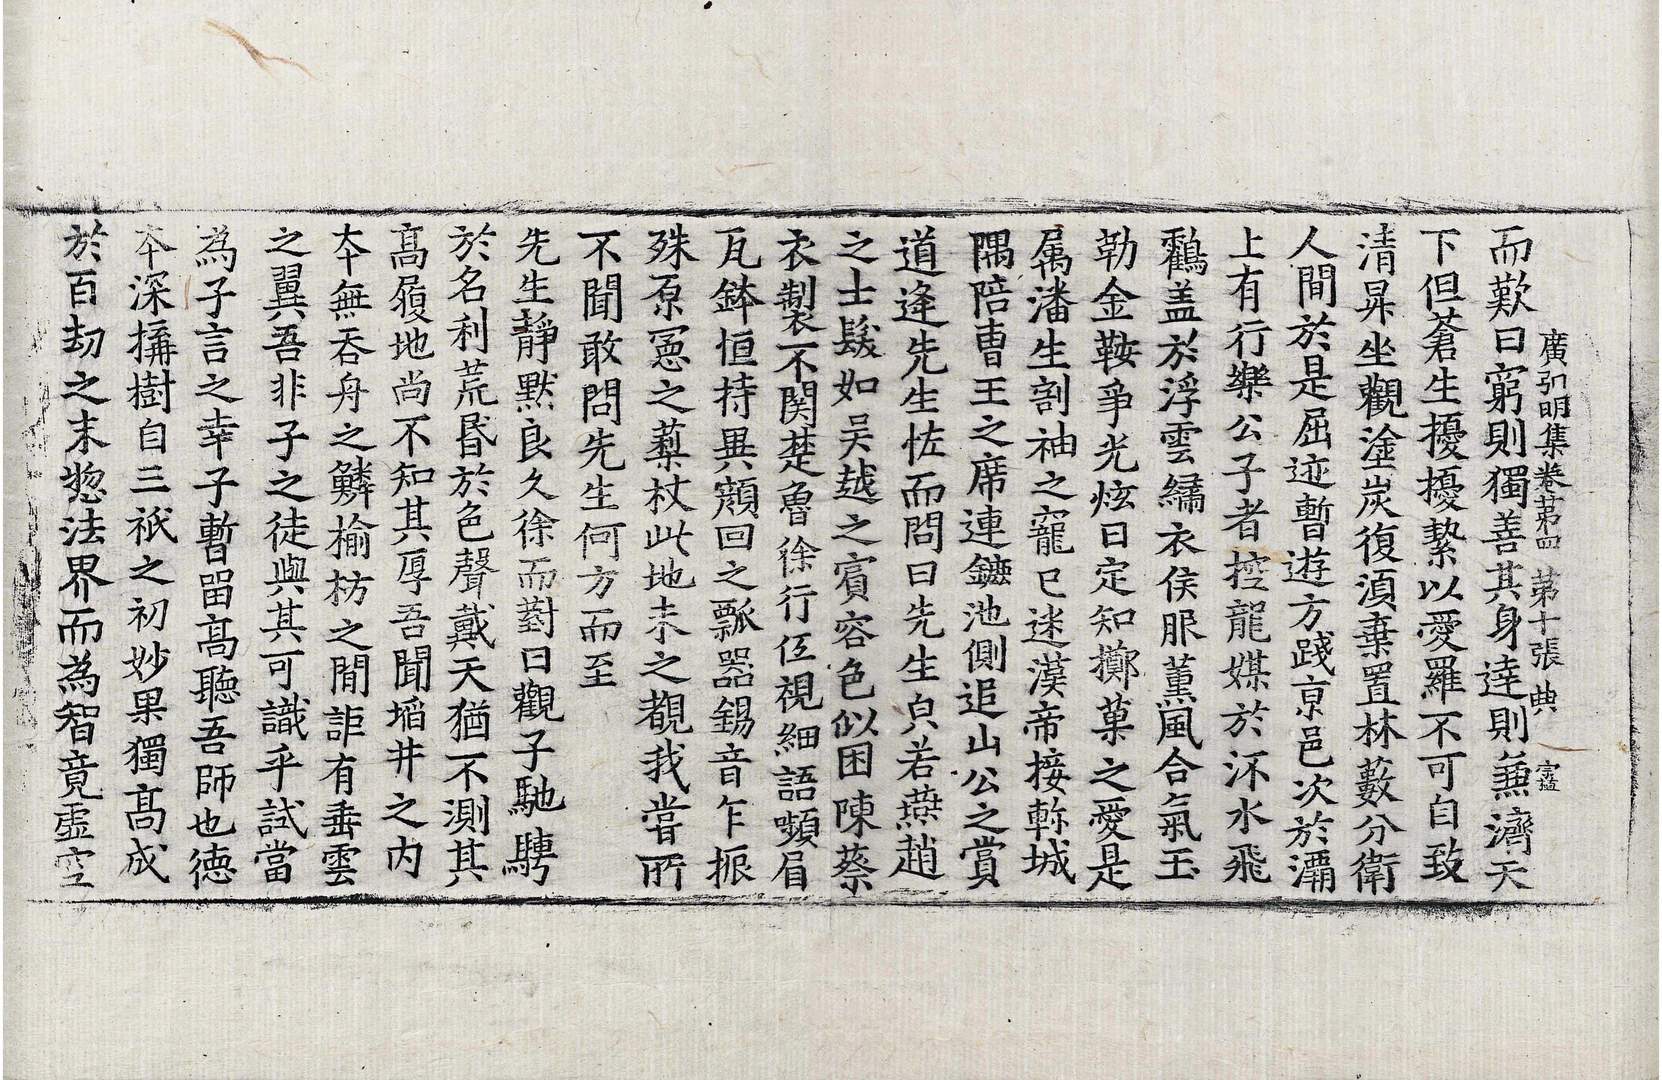 廣弘明集卷第四 第十張 典
而歎曰窮則獨善其身達則蕪濟天
下但蒼生擾擾縶以愛羅不可自致
清昇坐觀塗炭復湏棄置林藪分衛
人間於是屈迹暫遊方踐京邑次於灞
上有行樂公子者控龍媒於沠水飛
鸛盖於浮雲繡衣侯服薫風合氣玉
勒金鞍爭光炫日定知擲菓之愛是
属潘生割袖之寵已迷漢帝接軫城
隅陪曹王之席連鑣池側追山公之賞
道逢先生怪而問曰先生貞若燕趙
之士髮如吴越之賓容色似困陳蔡
衣製不関楚魯徐行伍視細語嚬眉
瓦鉢恒持異顔回之瓢噐錫音乍振
殊原憲之藜杖此地未之覩我嘗所
不聞敢問先生何方而至
先生靜默良久徐而對曰觀子馳騁
於名利荒昬於色聲戴天猶不測其
髙履地尚不知其厚吾聞埳井之内
夲無吞舟之鱗榆枋之間詎有垂雲
之翼吾非子之徒與其可識乎試當
為子言之幸子暫留髙聽吾師也徳
夲深構樹自三祇之初妙果獨髙成
於百劫之末惣法界而為智竟虚空